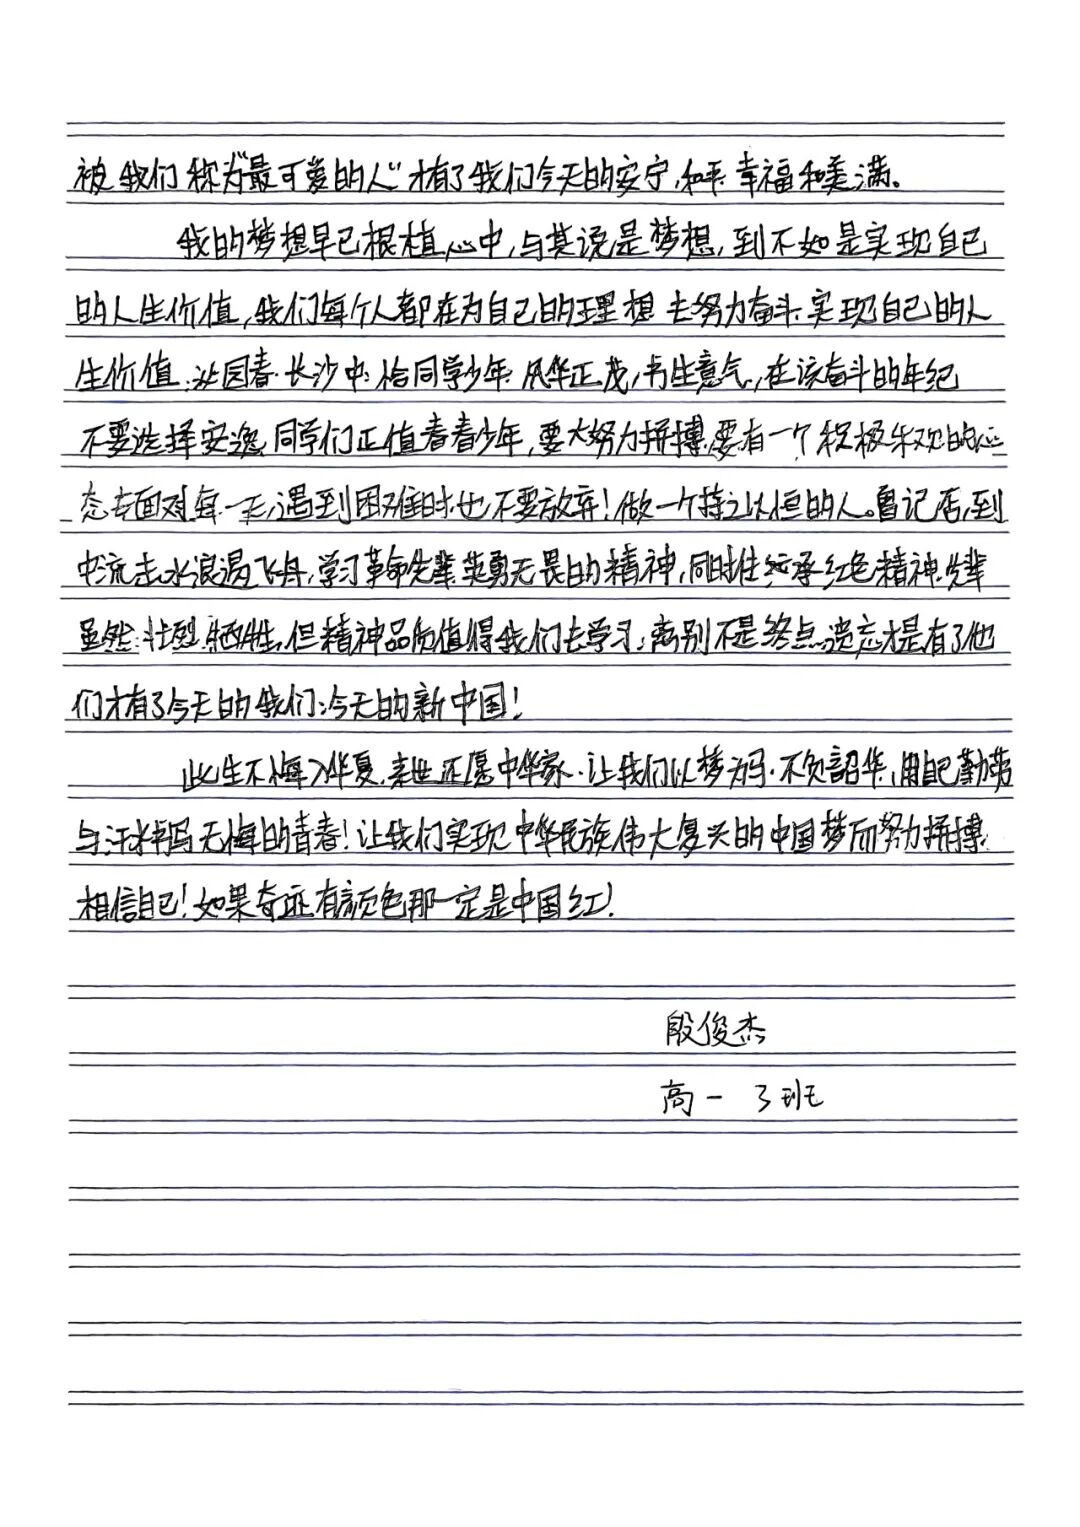 被我们称为“最可爱的人”才有了我们今天的安宁,和平.幸福和美满。
我的梦想早已根植心中,与其说是梦想,到不如是实现自己
的人生价值,我们每个人都在为自己的理想去努力奋斗.实现自己的人
生价值.沁园春·长沙中.恰同学少年.风华正茂,书生意气,在该奋斗的年纪
不要选择安逸.同学们正值青春少年,要大努力拼搏.要有一个积极乐观的心
态去面对每一天,遇到困难时也不要放弃!做一个持之以恒的人。曾记否,到
中流击水浪遏飞舟,学习革命先辈英勇无畏的精神,同时往继承红色精神.先辈
虽然壮烈牺牲,但精神品质值得我们去学习,离别不是终点.遗忘才是有了他
们才有了今天的我们,今天的新中国!
此生不悔入华夏.来世还愿中华家.让我们以梦为马.不负韶华,用自己勤劳
与汗水书写无悔的青春!让我们实现中华民族伟大复兴的中国梦而努力拼搏.
相信自己!如果奇迹有颜色那一定是中国红!
殷俊杰
高一 3班